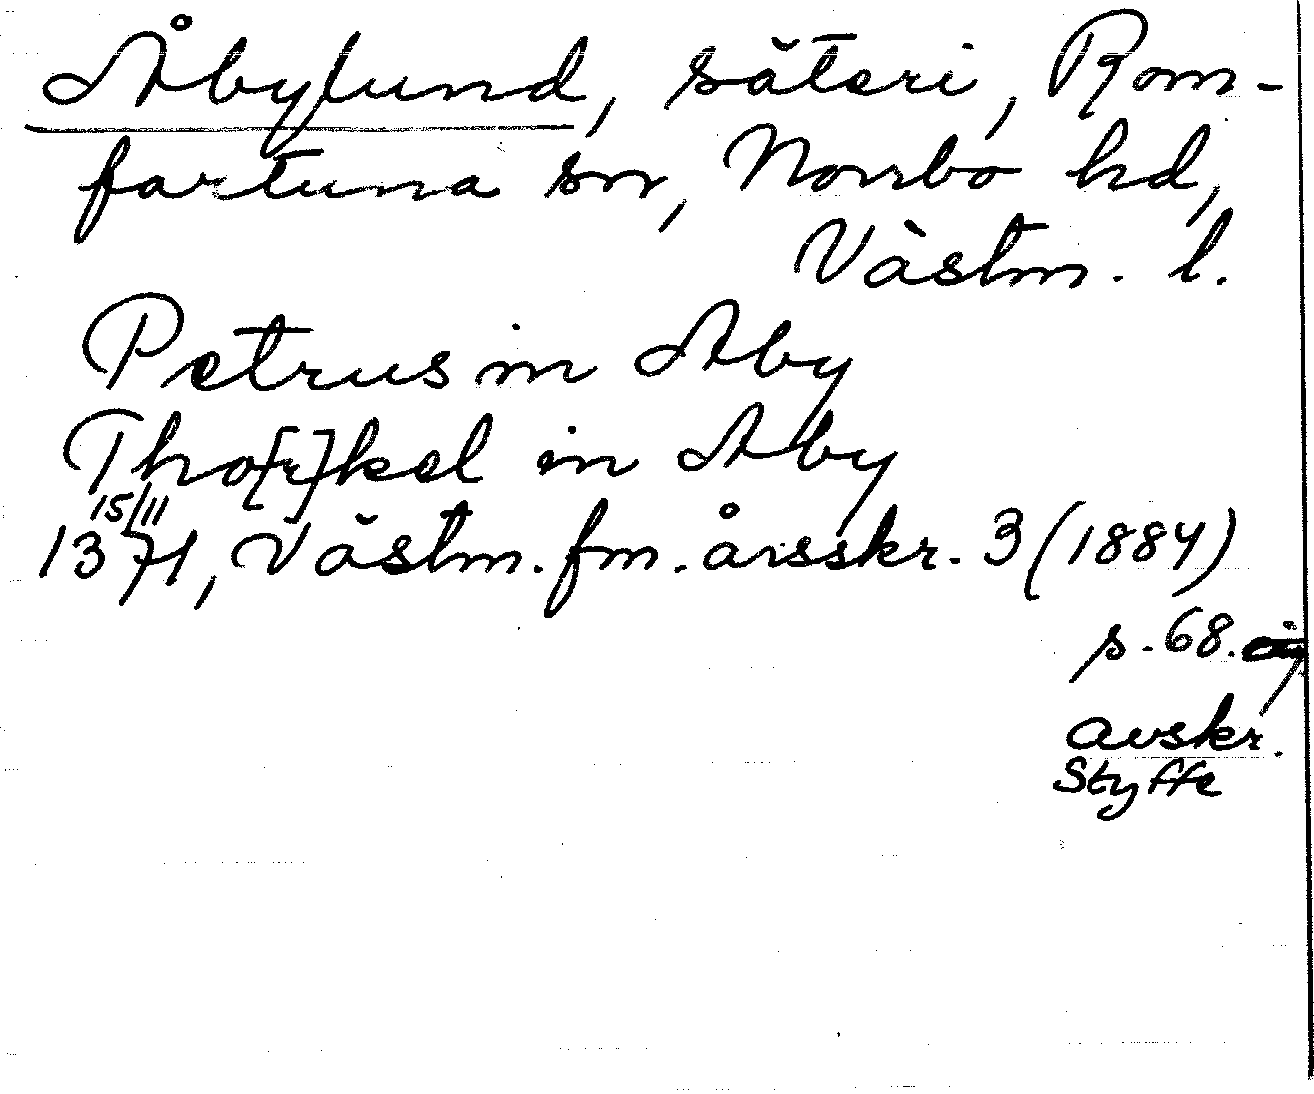 Åbylund, säteri, Rom-
fartuna sn, Norrbo hd,
Västm. l.
Petrus in Aby
Tho[r]kel in Aby
15/11
1371, Västm. fm. årsskr. 3 (1884)
s. 68.
avskr.
Styffe